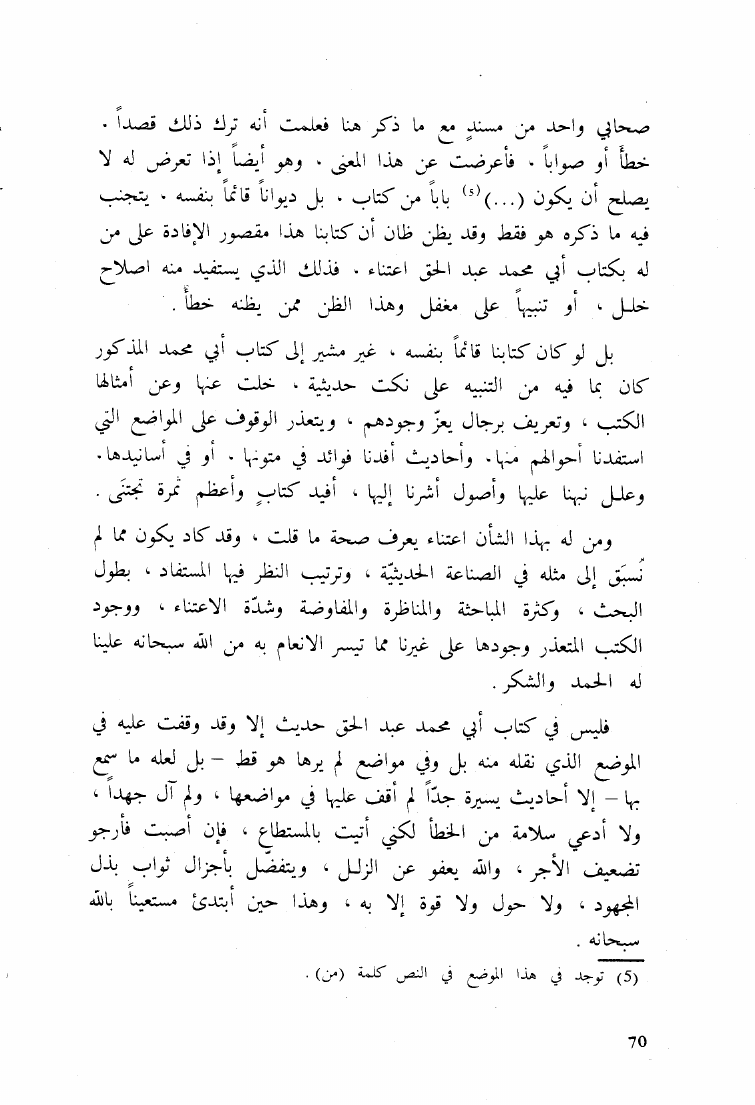 صحابي واحد من مسندٍ مع ما ذكر هنا فعلمت أنه ترك ذلك قصداً .
خطأً أو صواباً . فأعرضت عن هذا المعنى . وهو أيضاً إذا تعرض له لا
يصلح أن يكون (...)(5) باباً من كتاب . بل ديواناً قائماً بنفسه . يتجنب
فيه ما ذكره هو فقط وقد يظن ظان أن كتابنا هذا مقصور الإفادة على من
له بكتاب أبي محمد عبد الحق اعتناء . فذلك الذي يستفيد منه اصلاح
خلل ، أو تنبيهاً على مغفل وهذا الظن ممن يظنه خطأ .
بل لو كان كتابنا قائماً بنفسه ، غير مشير إلى كتاب أبي محمد المذكور
كان بما فيه من التنبيه على نكت حديثية . خلت عنها وعن أمثالها
الكتب ، وتعريف برجال يعزّ وجودهم ، ويتعذر الوقوف على المواضع التي
استفدنا أحوالهم منها . وأحاديث أفدنا فوائد في متونها . أو في أسانيدها .
وعلل نبهنا عليها وأصول أشرنا إليها ، أفيد كتابٍ وأعظم ثمرة تجتَنَى .
ومن له بهذا الشأن اعتناء يعرف صحة ما قلت ، وقد كاد يكون مما لم
نُسبَق إلى مثله في الصناعة الحديثيّة ، وترتيب النظر فيها المستفاد ، بطول
البحث ، وكثرة المباحثة والمناظرة والمفاوضة وشدّة الاعتناء ، ووجود
الكتب المتعذر وجودها على غيرنا مما تيسر الانعام به من الله سبحانه علينا
له الحمد والشكر .
فليس في كتاب أبي محمد عبد الحق حديث إلا وقد وقفت عليه في
الموضع الذي نقله منه بل وفي مواضع لم يرها هو قط – بل لعله ما سمع
بها – إلا أحاديث يسيرة جدّاً لم أقف عليها في مواضعها ، ولم آل جهداً ،
ولا أدعي سلامة من الخطأ لكني أتيت بالمستطاع ، فإن أصبت فأرجو
تضعيف الأجر ، والله يعفو عن الزلل ، ويتفضّل بأجزال ثواب بذل
المجهود ، ولا حول ولا قوة إلا به ، وهذا حين أبتدئ مستعيناً بالله
سبحانه .
(5) توجد في هذا الموضع في النص كلمة (من) .
70